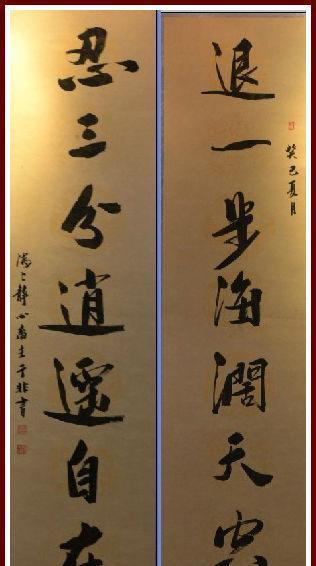 退一步海阔天空
癸巳夏月
忍三分逍遥自在
静心斋主于非书